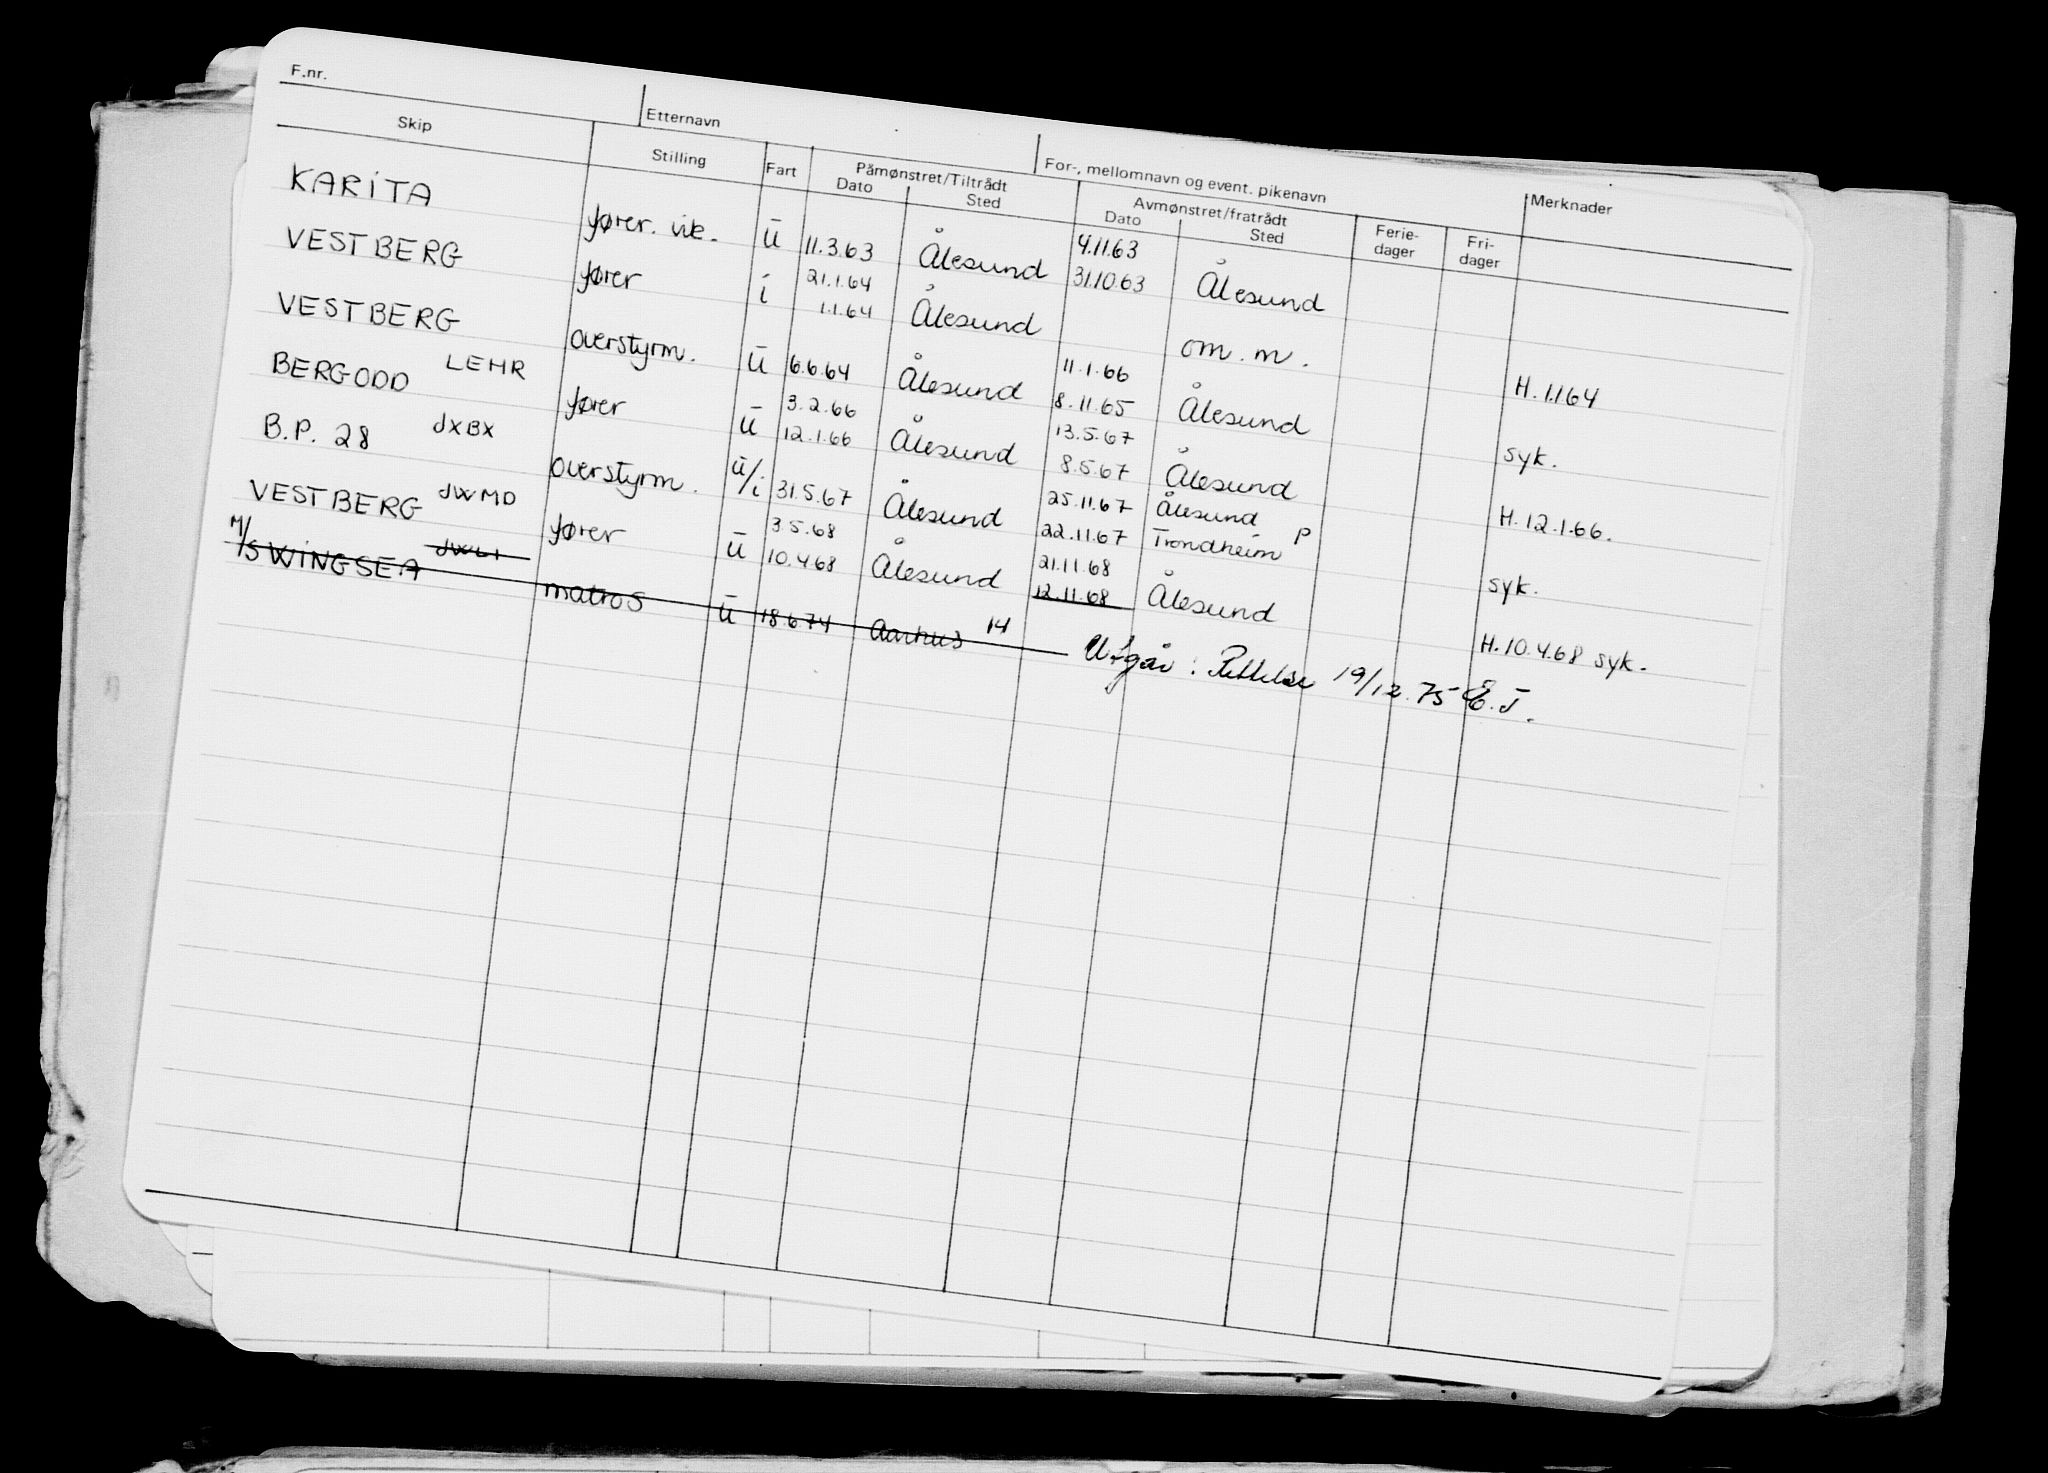 F.nr.
Etternavn
For-, mellomnavn og event. pikenavn
Skip Stilling Fart Påmønstret/Tiltrådt Avmønstret/fratrådt Ferie- Fri- Merknader
Dato Sted Dato Sted dager dager
KARITA fører. vik. ū 11.3.63 Ålesund 4.11.63
31.10.63 Ålesund
VESTBERG fører i 21.1.64
1.1.64 Ålesund om.m. H.1.1.64
VESTBERG LEHR overstyrm. ū 6.6.64 Ålesund 11.1.66
8.11.65 Ålesund syk.
BERGODD JXBX fører ū 3.2.66
12.1.66 Ålesund 13.5.67
8.5.67 Ålesund H.12.1.66.
B.P. 28 JWMD overstyrm. ū/i 31.5.67 Ålesund 25.11.67 Ålesund P
22.11.67 Trondheim syk.
VESTBERG fører ū 3.5.68
10.4.68 Ålesund 21.11.68
12.11.68 Ålesund H.10.4.68 syk.
M/S WINGSEA matros ū 18.6.74 Aarhus 14 Utgår: Rettelse 19/12.75 E.J.